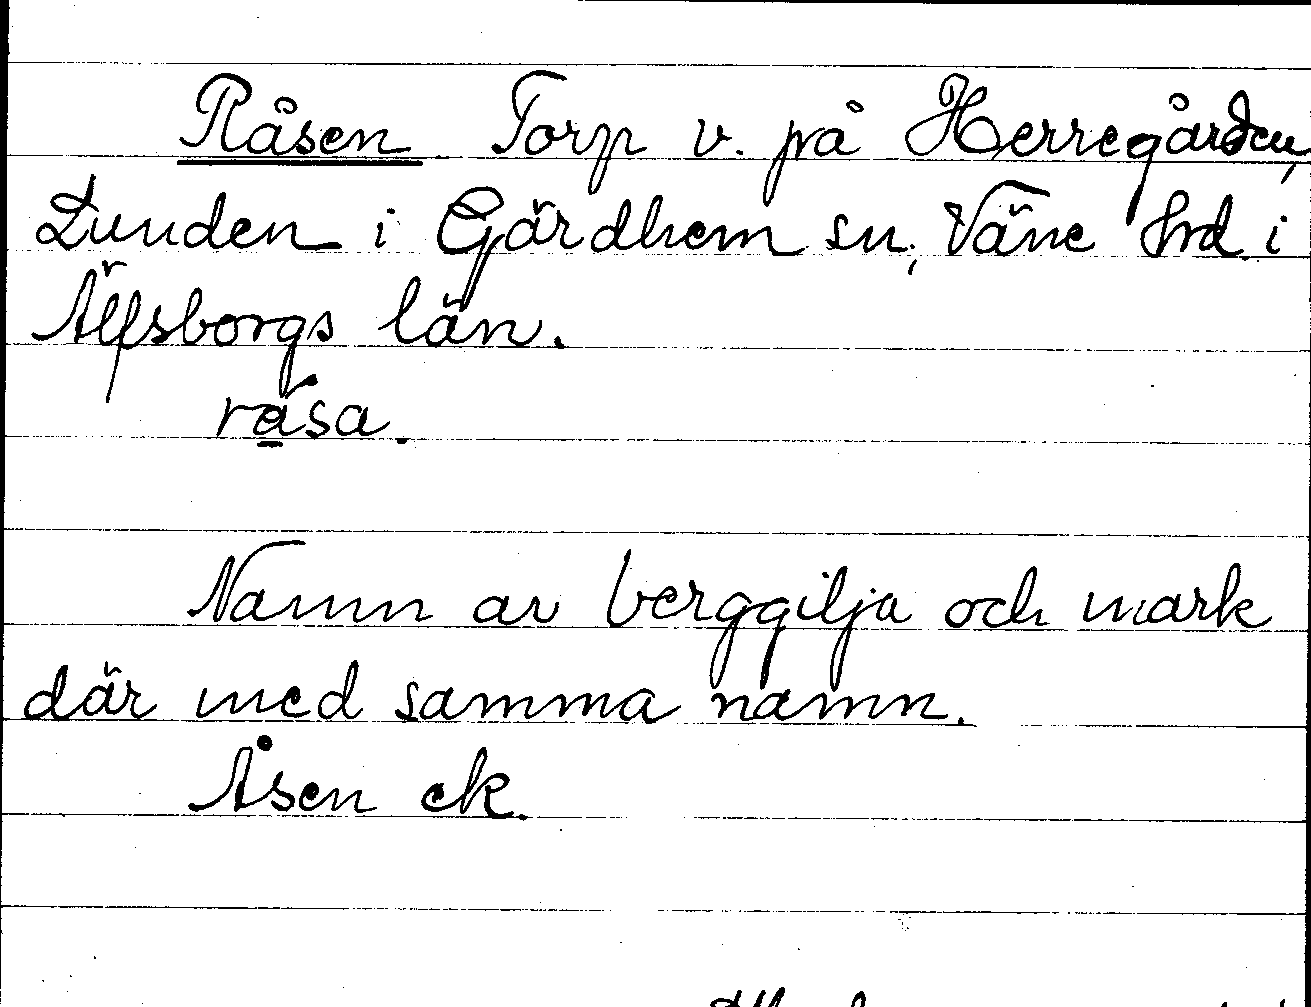 Råsen Torp v. på Herregården,
Lunden i Gärdhem sn, Väne hrd i
Älfsborgs län.
råsa.
Namn av berggilja och mark
där med samma namn.
Åsen ek.